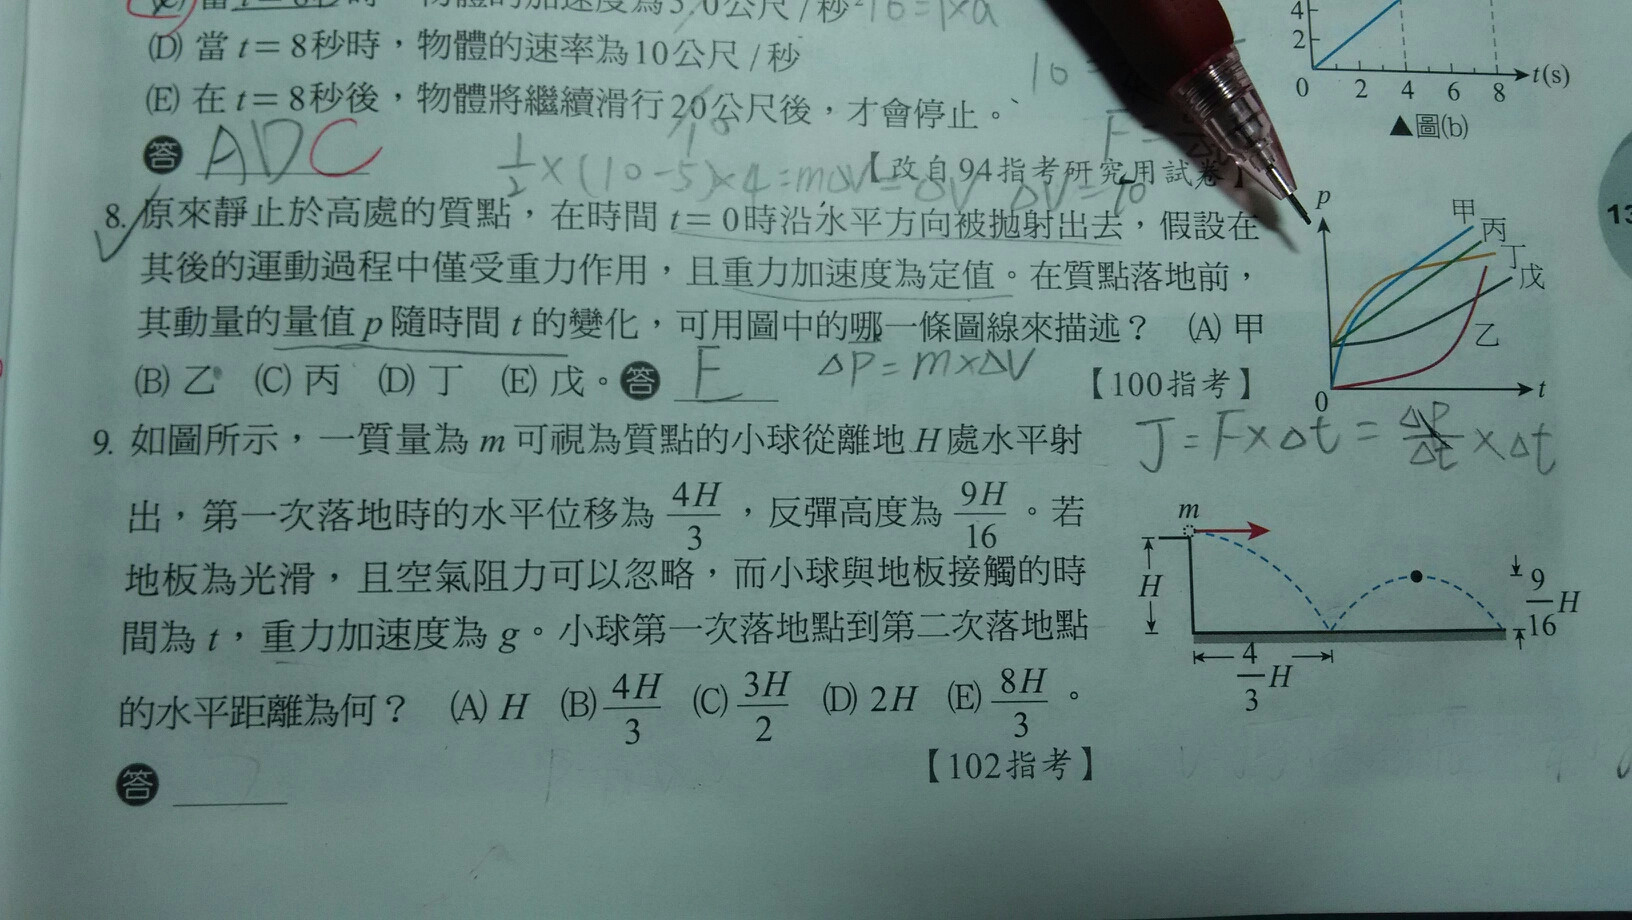 (D) 當 t = 8 秒時，物體的速率為 10 公尺 / 秒
(E) 在 t = 8 秒後，物體將繼續滑行 20 公尺後，才會停止。
答 ADC
【改自 94 指考研究用試卷】
4
2
0 2 4 6 8 t(s)
▲圖(b)
10
1/2 × (10-5) × 4 = mΔV = ΔV ΔV = 10
8. 原來靜止於高處的質點，在時間 t = 0 時沿水平方向被拋射出去，假設在
其後的運動過程中僅受重力作用，且重力加速度為定值。在質點落地前，
其動量的量值 p 隨時間 t 的變化，可用圖中的哪一條圖線來描述？ (A) 甲
(B) 乙 (C) 丙 (D) 丁 (E) 戊。答 E
ΔP = m×ΔV
【100 指考】
p
甲
丙
丁
戊
乙
0
t
J = F×Δt = ΔP/Δt ×Δt
9. 如圖所示，一質量為 m 可視為質點的小球從離地 H 處水平射
出，第一次落地時的水平位移為 4H/3，反彈高度為 9H/16。若
地板為光滑，且空氣阻力可以忽略，而小球與地板接觸的時
間為 t，重力加速度為 g。小球第一次落地點到第二次落地點
的水平距離為何？ (A) H (B) 4H/3 (C) 3H/2 (D) 2H (E) 8H/3。
【102 指考】
答
m
H
4/3 H
9/16 H
13